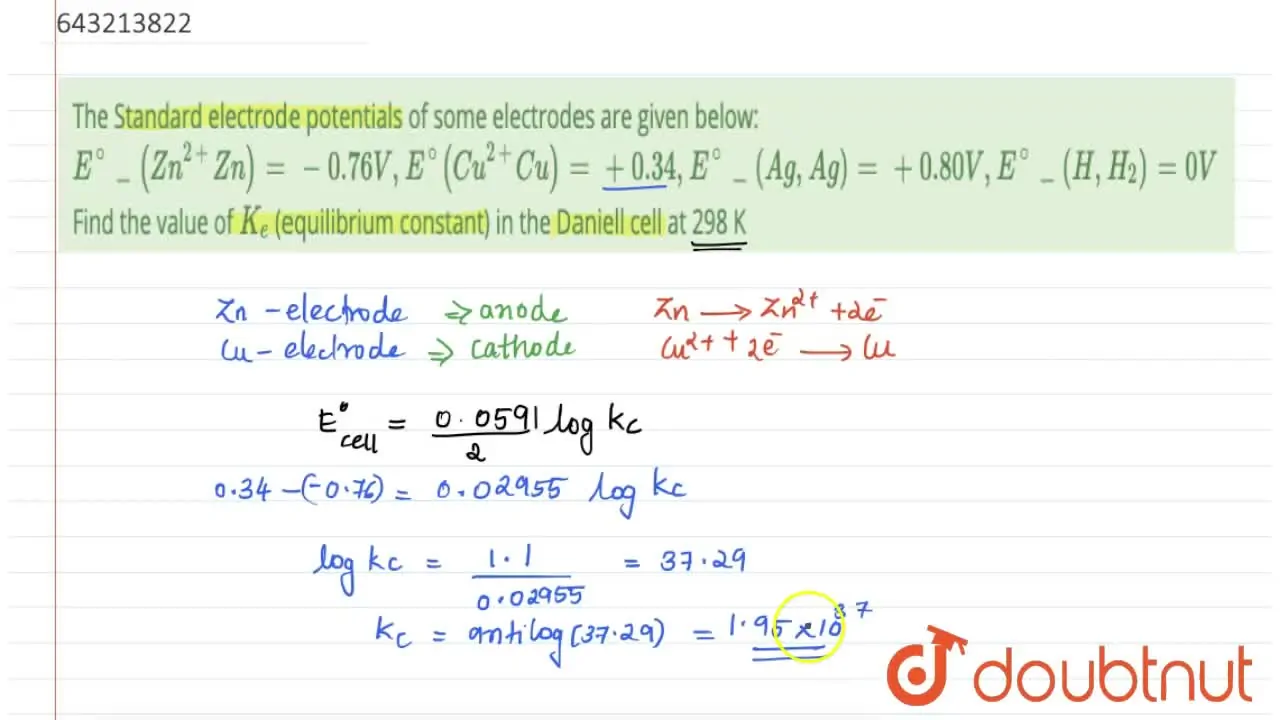 643213822
The Standard electrode potentials of some electrodes are given below:
E°_(Zn²⁺Zn) = −0.76V, E°(Cu²⁺Cu) = +0.34, E°_(Ag, Ag) = +0.80V, E°_(H, H₂) = 0V
Find the value of Kₑ (equilibrium constant) in the Daniell cell at 298 K
Zn - electrode ⇒ anode Zn ⟶ Zn²⁺ + 2e⁻
Cu - electrode ⇒ cathode Cu²⁺ + 2e⁻ ⟶ Cu
E°cell = 0.0591/2 log Kc
0.34 - (-0.76) = 0.02955 log Kc
log Kc = 1.1/0.02955 = 37.29
Kc = antilog (37.29) = 1.95 × 10³⁷
doubtnut